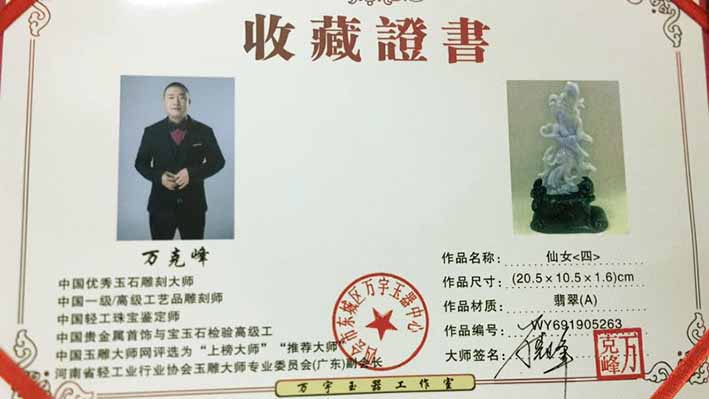 收藏證書
万克峰
中国优秀玉石雕刻大师
中国一级/高级工艺品雕刻师
中国轻工珠宝鉴定师
中国贵金属首饰与宝玉石检验高级工
中国玉雕大师网评选为“上榜大师”“推荐大师”
河南省轻工业行业协会玉雕大师专业委员会(广东)副会长
四会市东城区万宇玉器中心
作品名称: 仙女<四>
作品尺寸: (20.5×10.5×1.6)cm
作品材质: 翡翠(A)
作品编号: WY691905263
大师签名:
万克峰
万宇玉器工作室